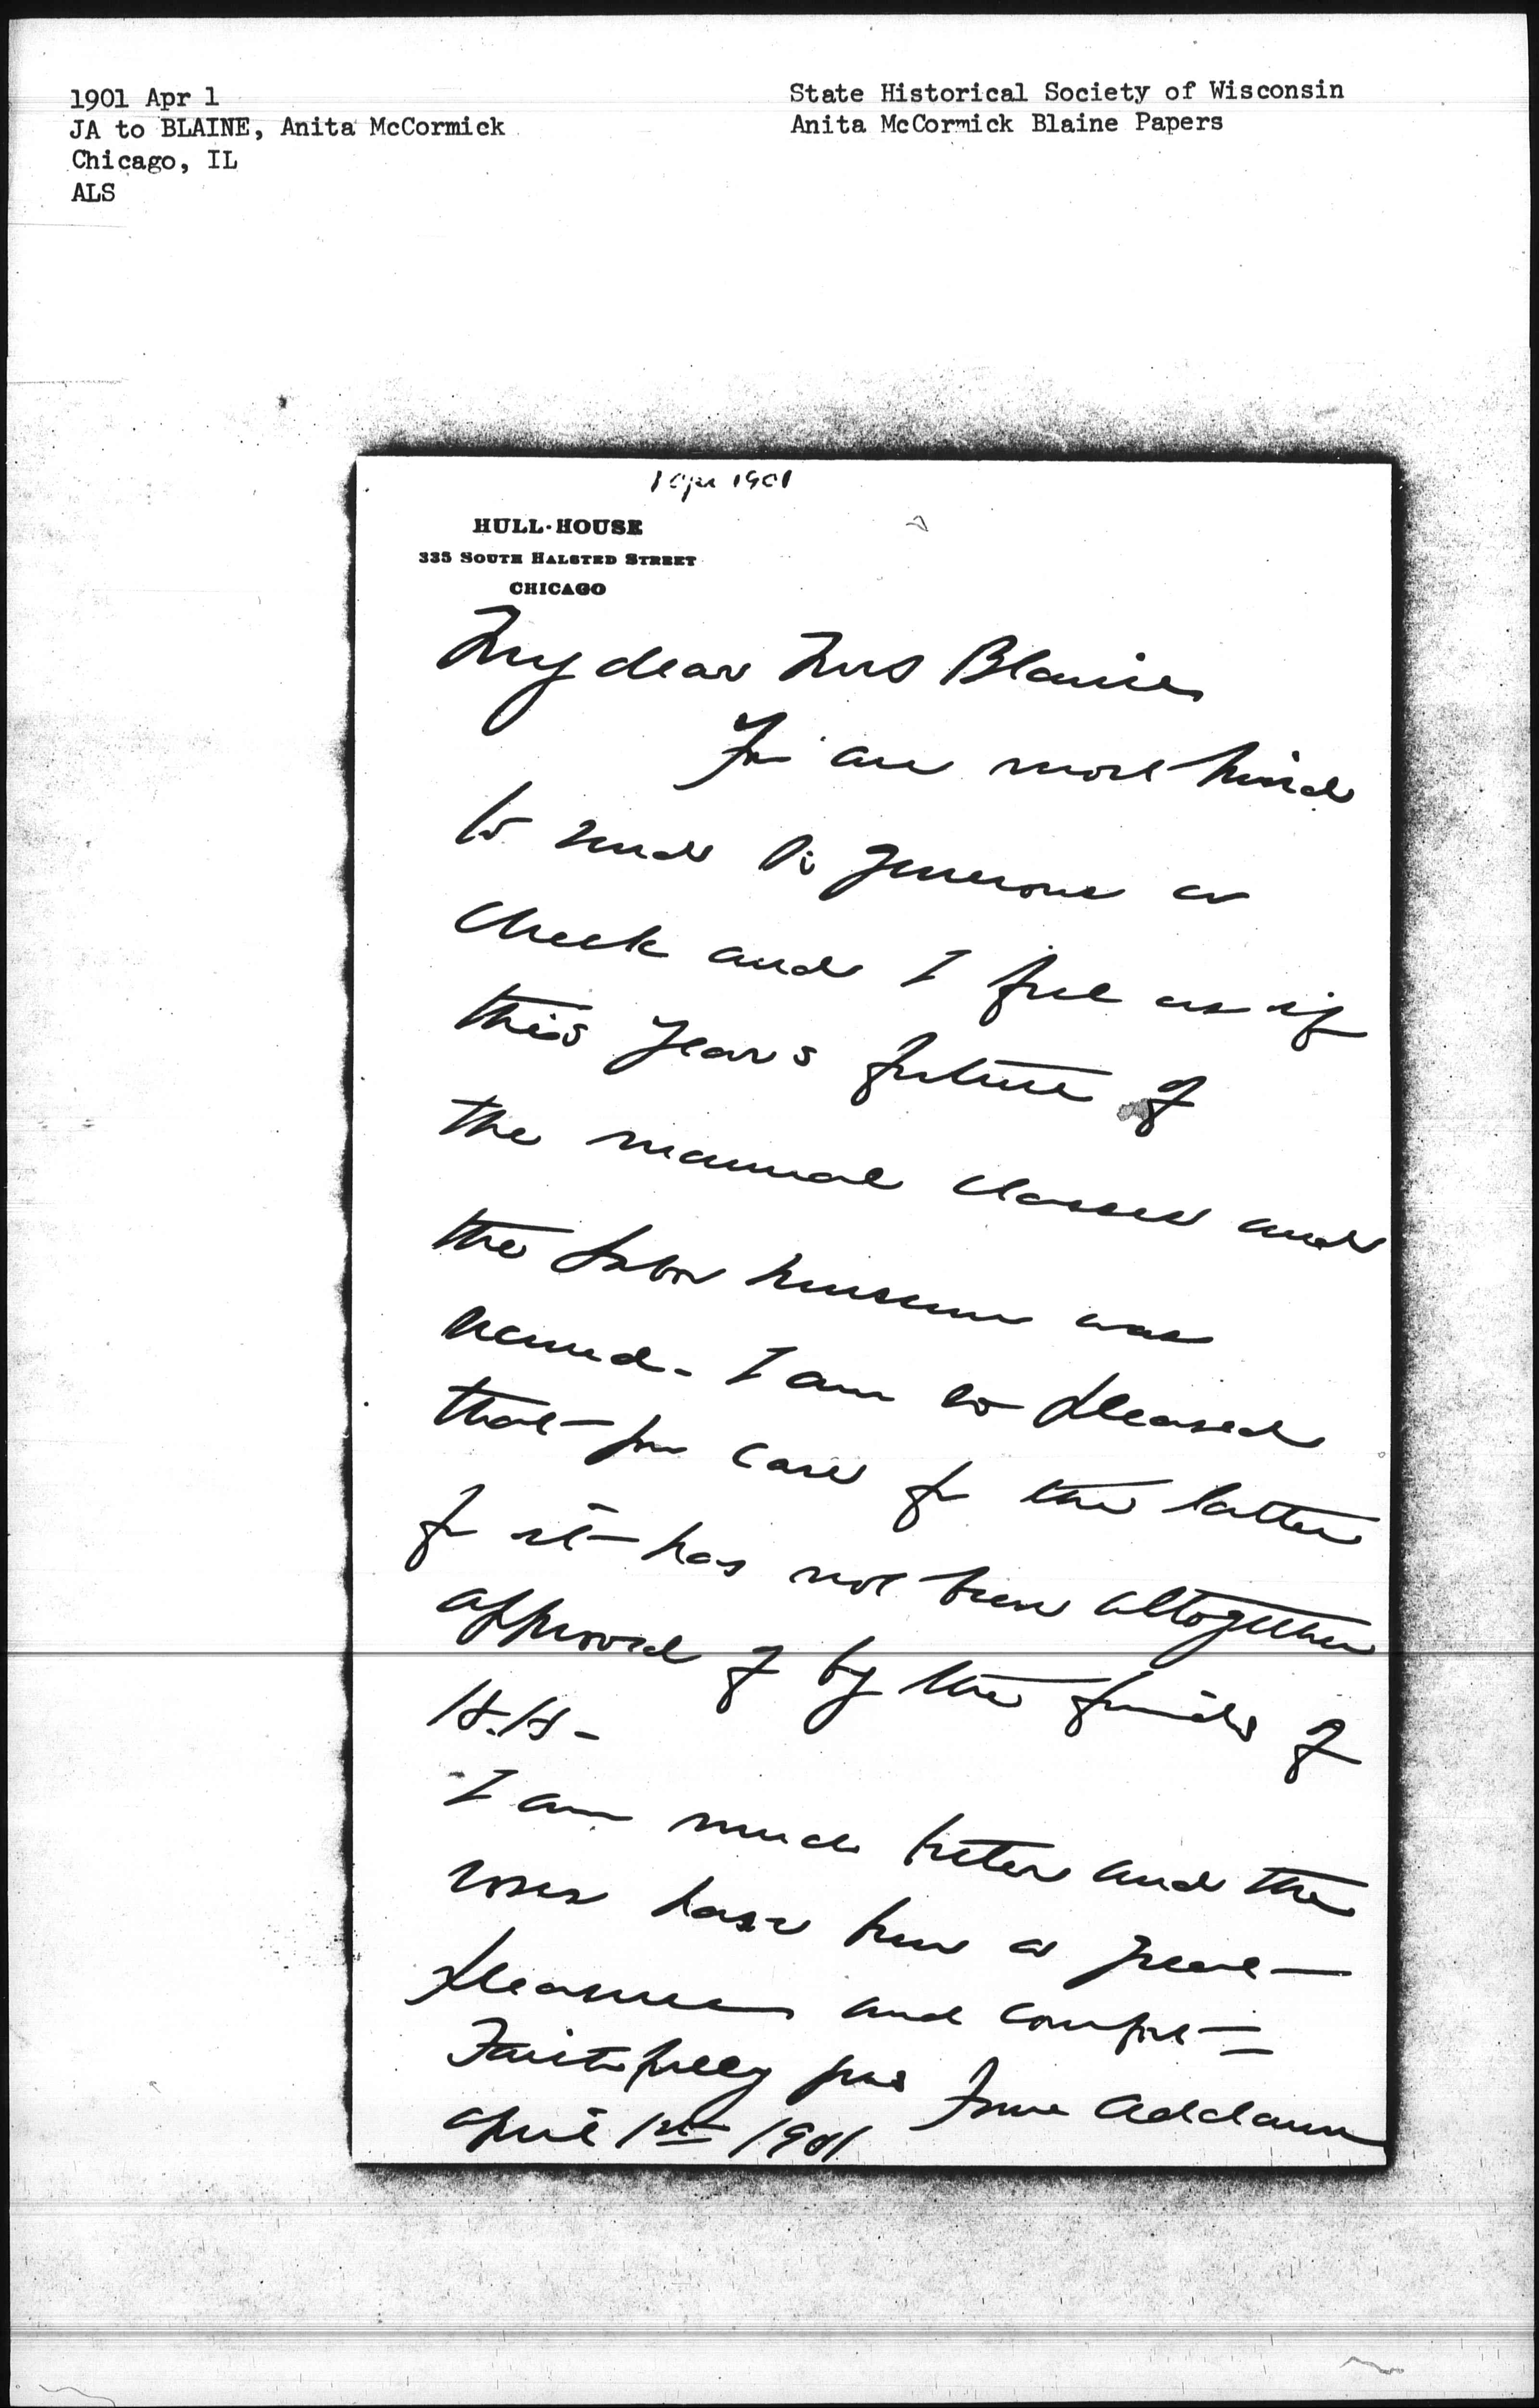 1901 Apr 1
JA to BLAINE, Anita McCormick
Chicago, IL
ALS
State Historical Society of Wisconsin
Anita McCormick Blaine Papers
1 Apr 1901
HULL-HOUSE
335 SOUTH HALSTED STREET
CHICAGO
My dear Mrs Blaine
You are most kind
to send so generous a
check and I feel as if
this years future of
the manual classes and
the labor museum was
secured. I am so pleased
that you care for the latter
for it has not been altogether
approved of by the friends of
H.H-
I am much better and the
roses have been a great
pleasure and comfort
Faithfully yours Jane Addams
April 1st 1901